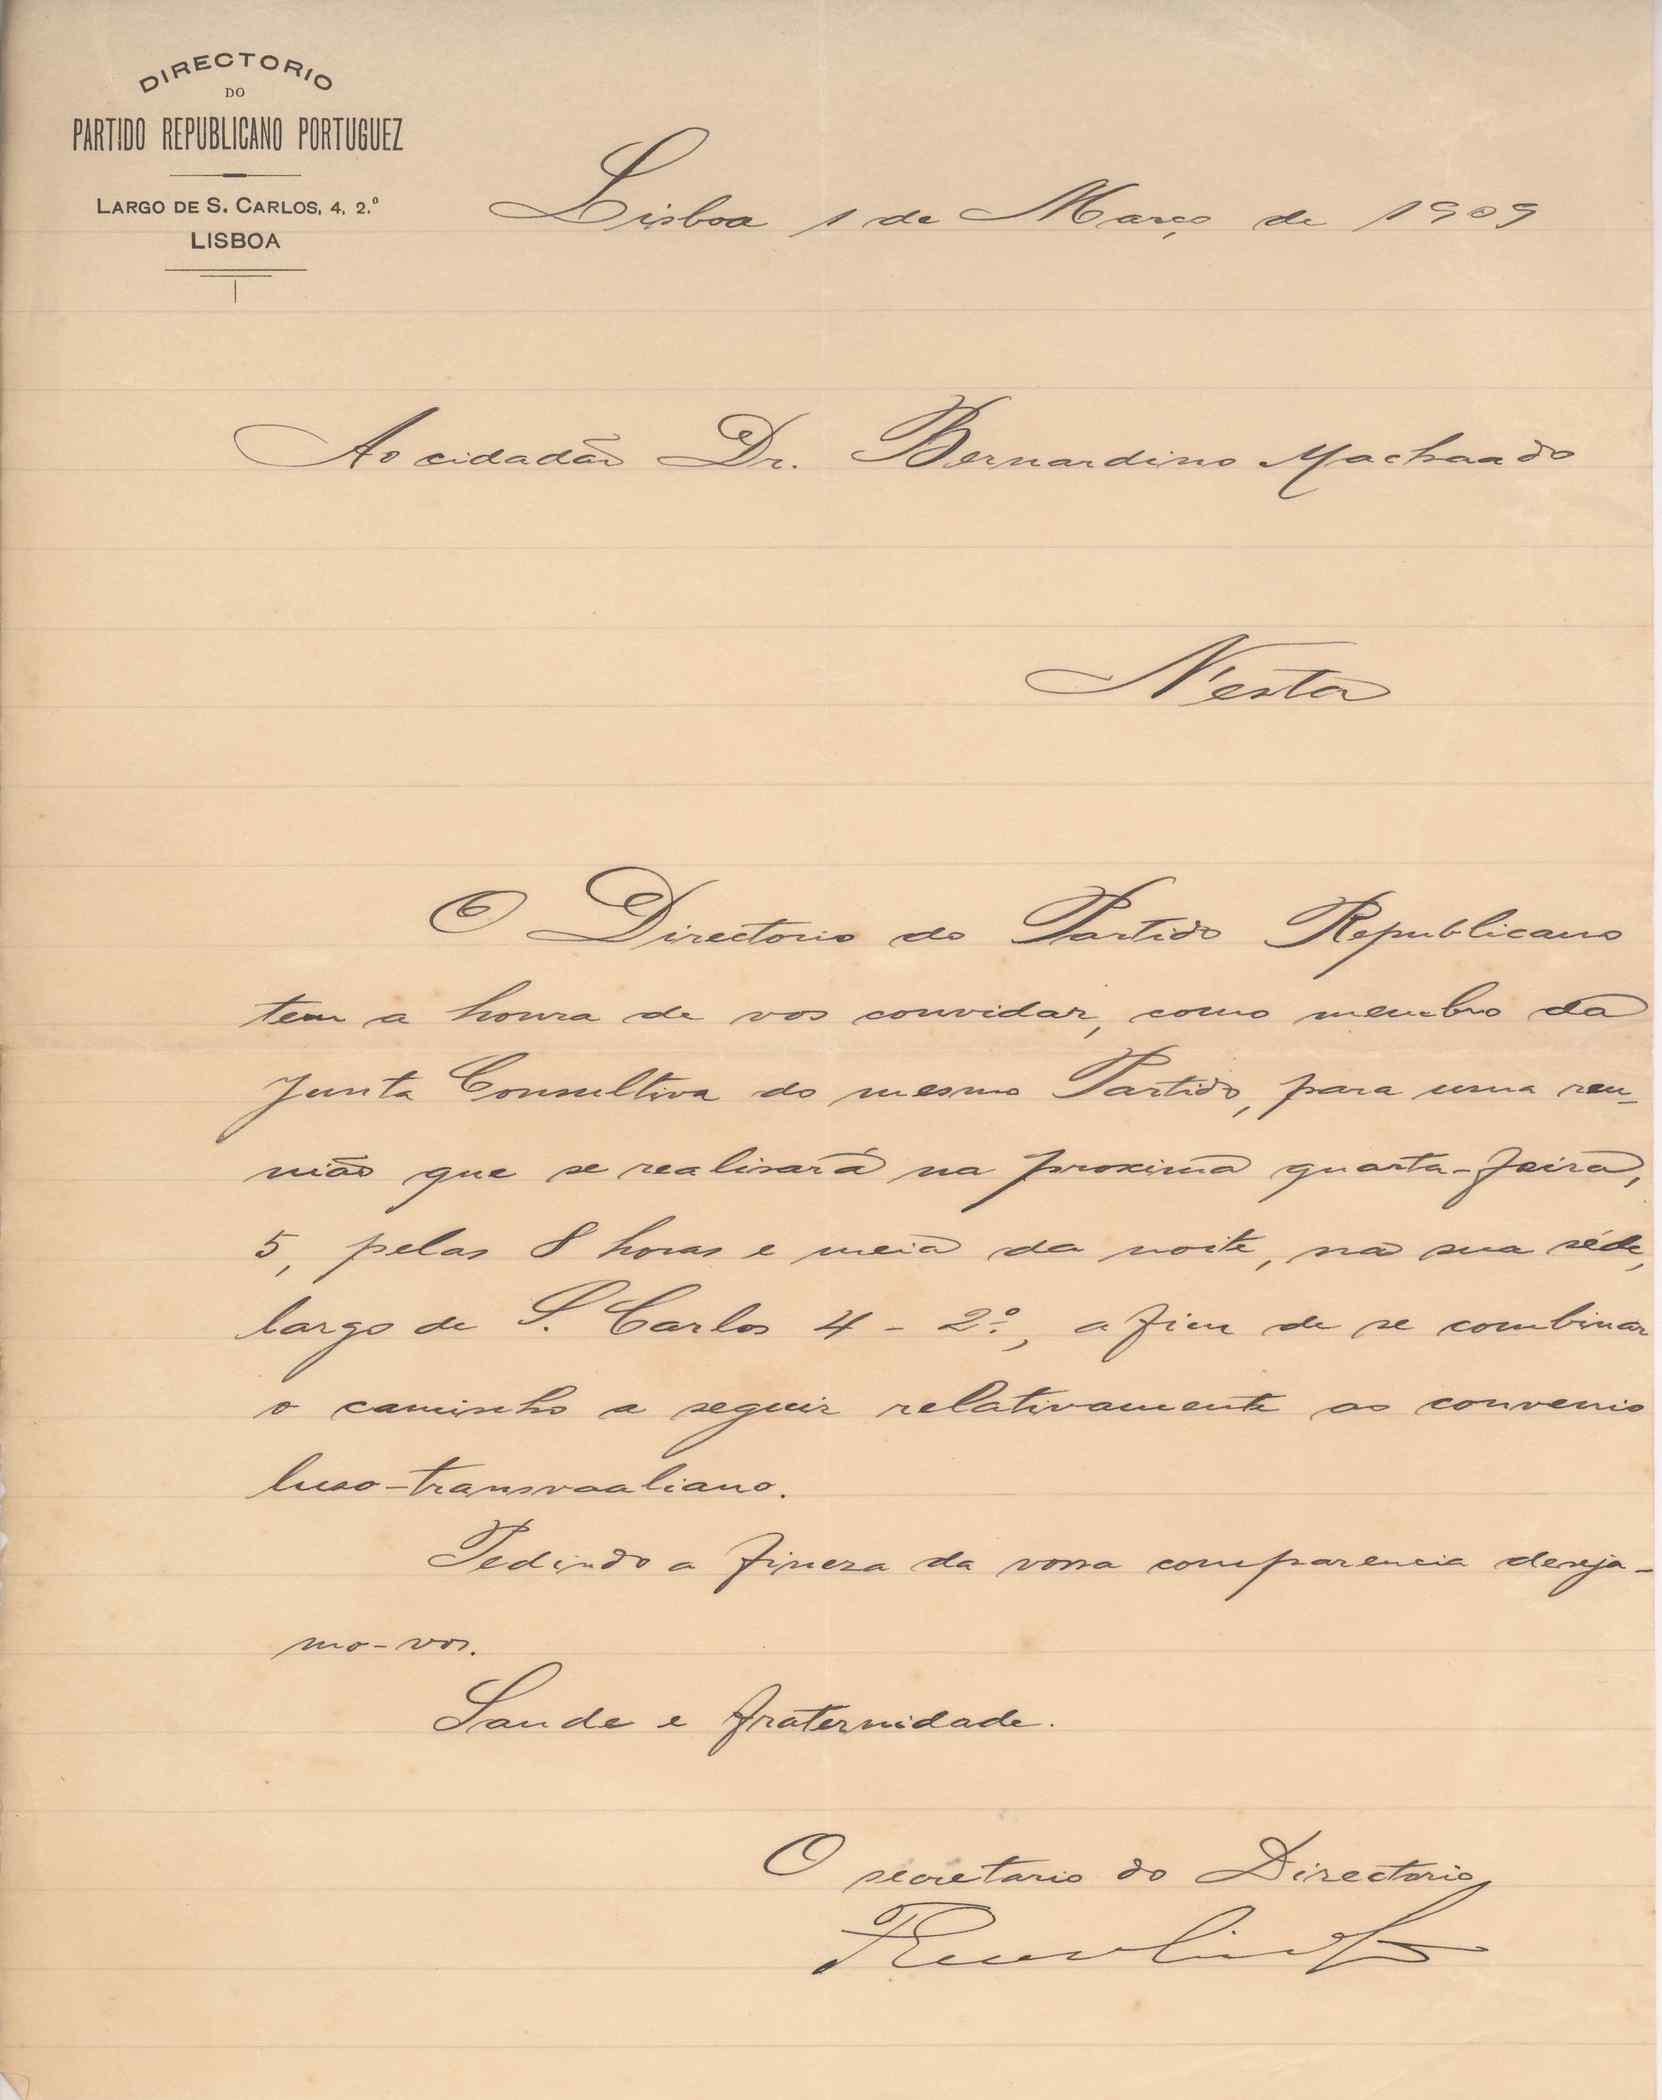 DIRECTORIO
DO
PARTIDO REPUBLICANO PORTUGUEZ
LARGO DE S. CARLOS, 4, 2.º
LISBOA
Lisboa 1 de Março de 1909
Ao cidadão Dr. Bernardino Machado
N'esta
O Directorio do Partido Republicano
tem a honra de vos convidar, como membro da
Junta Consultiva do mesmo Partido, para uma reu-
nião que se realisará na proxima quarta-feira,
5, pelas 8 horas e meia da noite, na sua séde,
largo de S. Carlos 4 - 2º, a fim de se combinar
o caminho a seguir relativamente ao convenio
luso-transvaaliano.
Pedindo a fineza da vossa comparencia deseja-
mo-vos.
Saude e fraternidade.
O secretario do Directorio